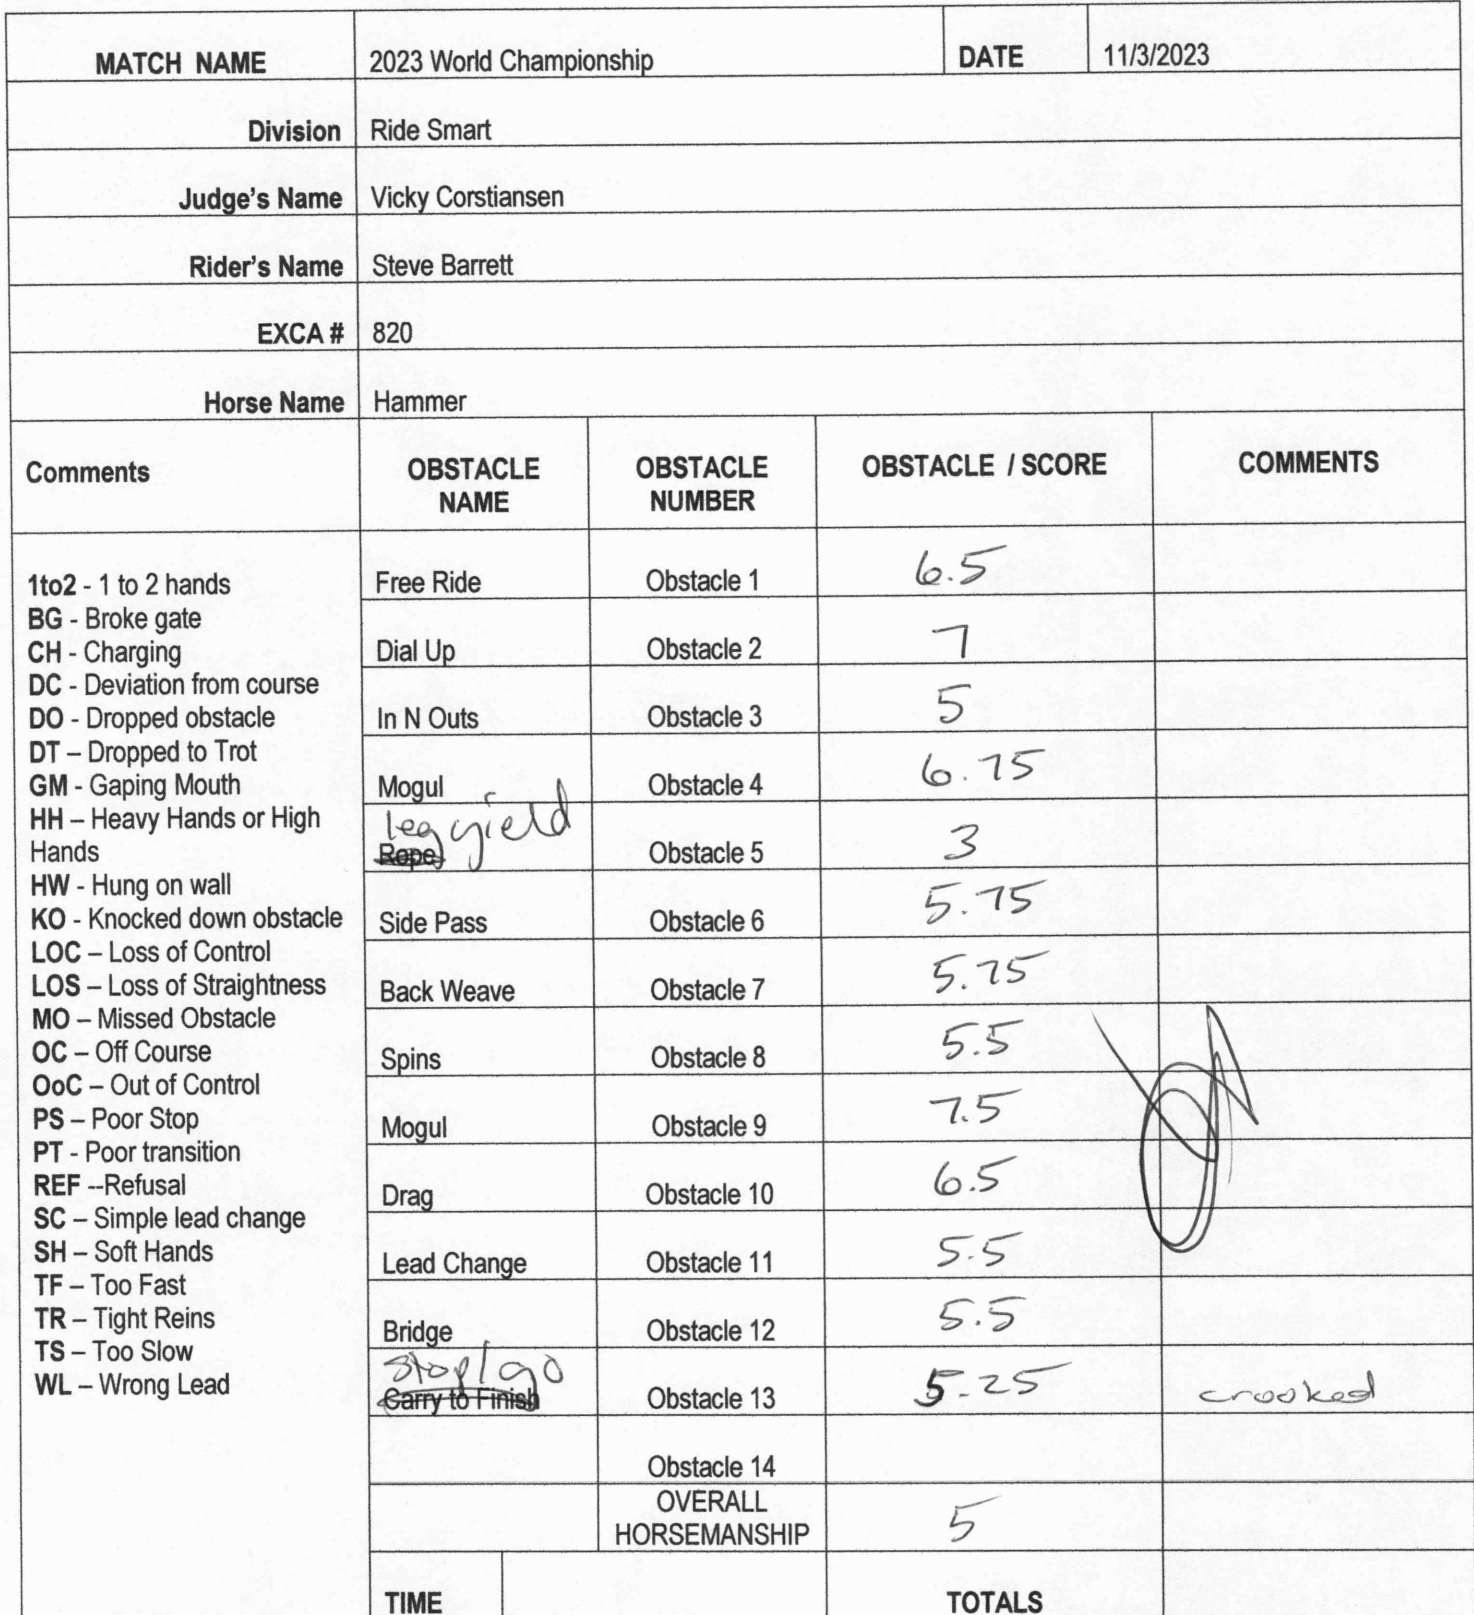 MATCH NAME 2023 World Championship DATE 11/3/2023
Division Ride Smart
Judge's Name Vicky Corstiansen
Rider's Name Steve Barrett
EXCA # 820
Horse Name Hammer
Comments OBSTACLE NAME OBSTACLE NUMBER OBSTACLE / SCORE COMMENTS
1to2 - 1 to 2 hands
BG - Broke gate
CH - Charging
DC - Deviation from course
DO - Dropped obstacle
DT – Dropped to Trot
GM - Gaping Mouth
HH – Heavy Hands or High
Hands
HW - Hung on wall
KO - Knocked down obstacle
LOC – Loss of Control
LOS – Loss of Straightness
MO – Missed Obstacle
OC – Off Course
OoC – Out of Control
PS – Poor Stop
PT - Poor transition
REF --Refusal
SC – Simple lead change
SH – Soft Hands
TF – Too Fast
TR – Tight Reins
TS – Too Slow
WL – Wrong Lead
Free Ride Obstacle 1 6.5
Dial Up Obstacle 2 7
In N Outs Obstacle 3 5
Mogul Obstacle 4 6.75
leg yield
Rope Obstacle 5 3
Side Pass Obstacle 6 5.75
Back Weave Obstacle 7 5.75
Spins Obstacle 8 5.5
Mogul Obstacle 9 7.5
Drag Obstacle 10 6.5
Lead Change Obstacle 11 5.5
Bridge Obstacle 12 5.5
stop/go
Carry to Finish Obstacle 13 5.25 crooked
Obstacle 14
OVERALL
HORSEMANSHIP 5
TIME TOTALS